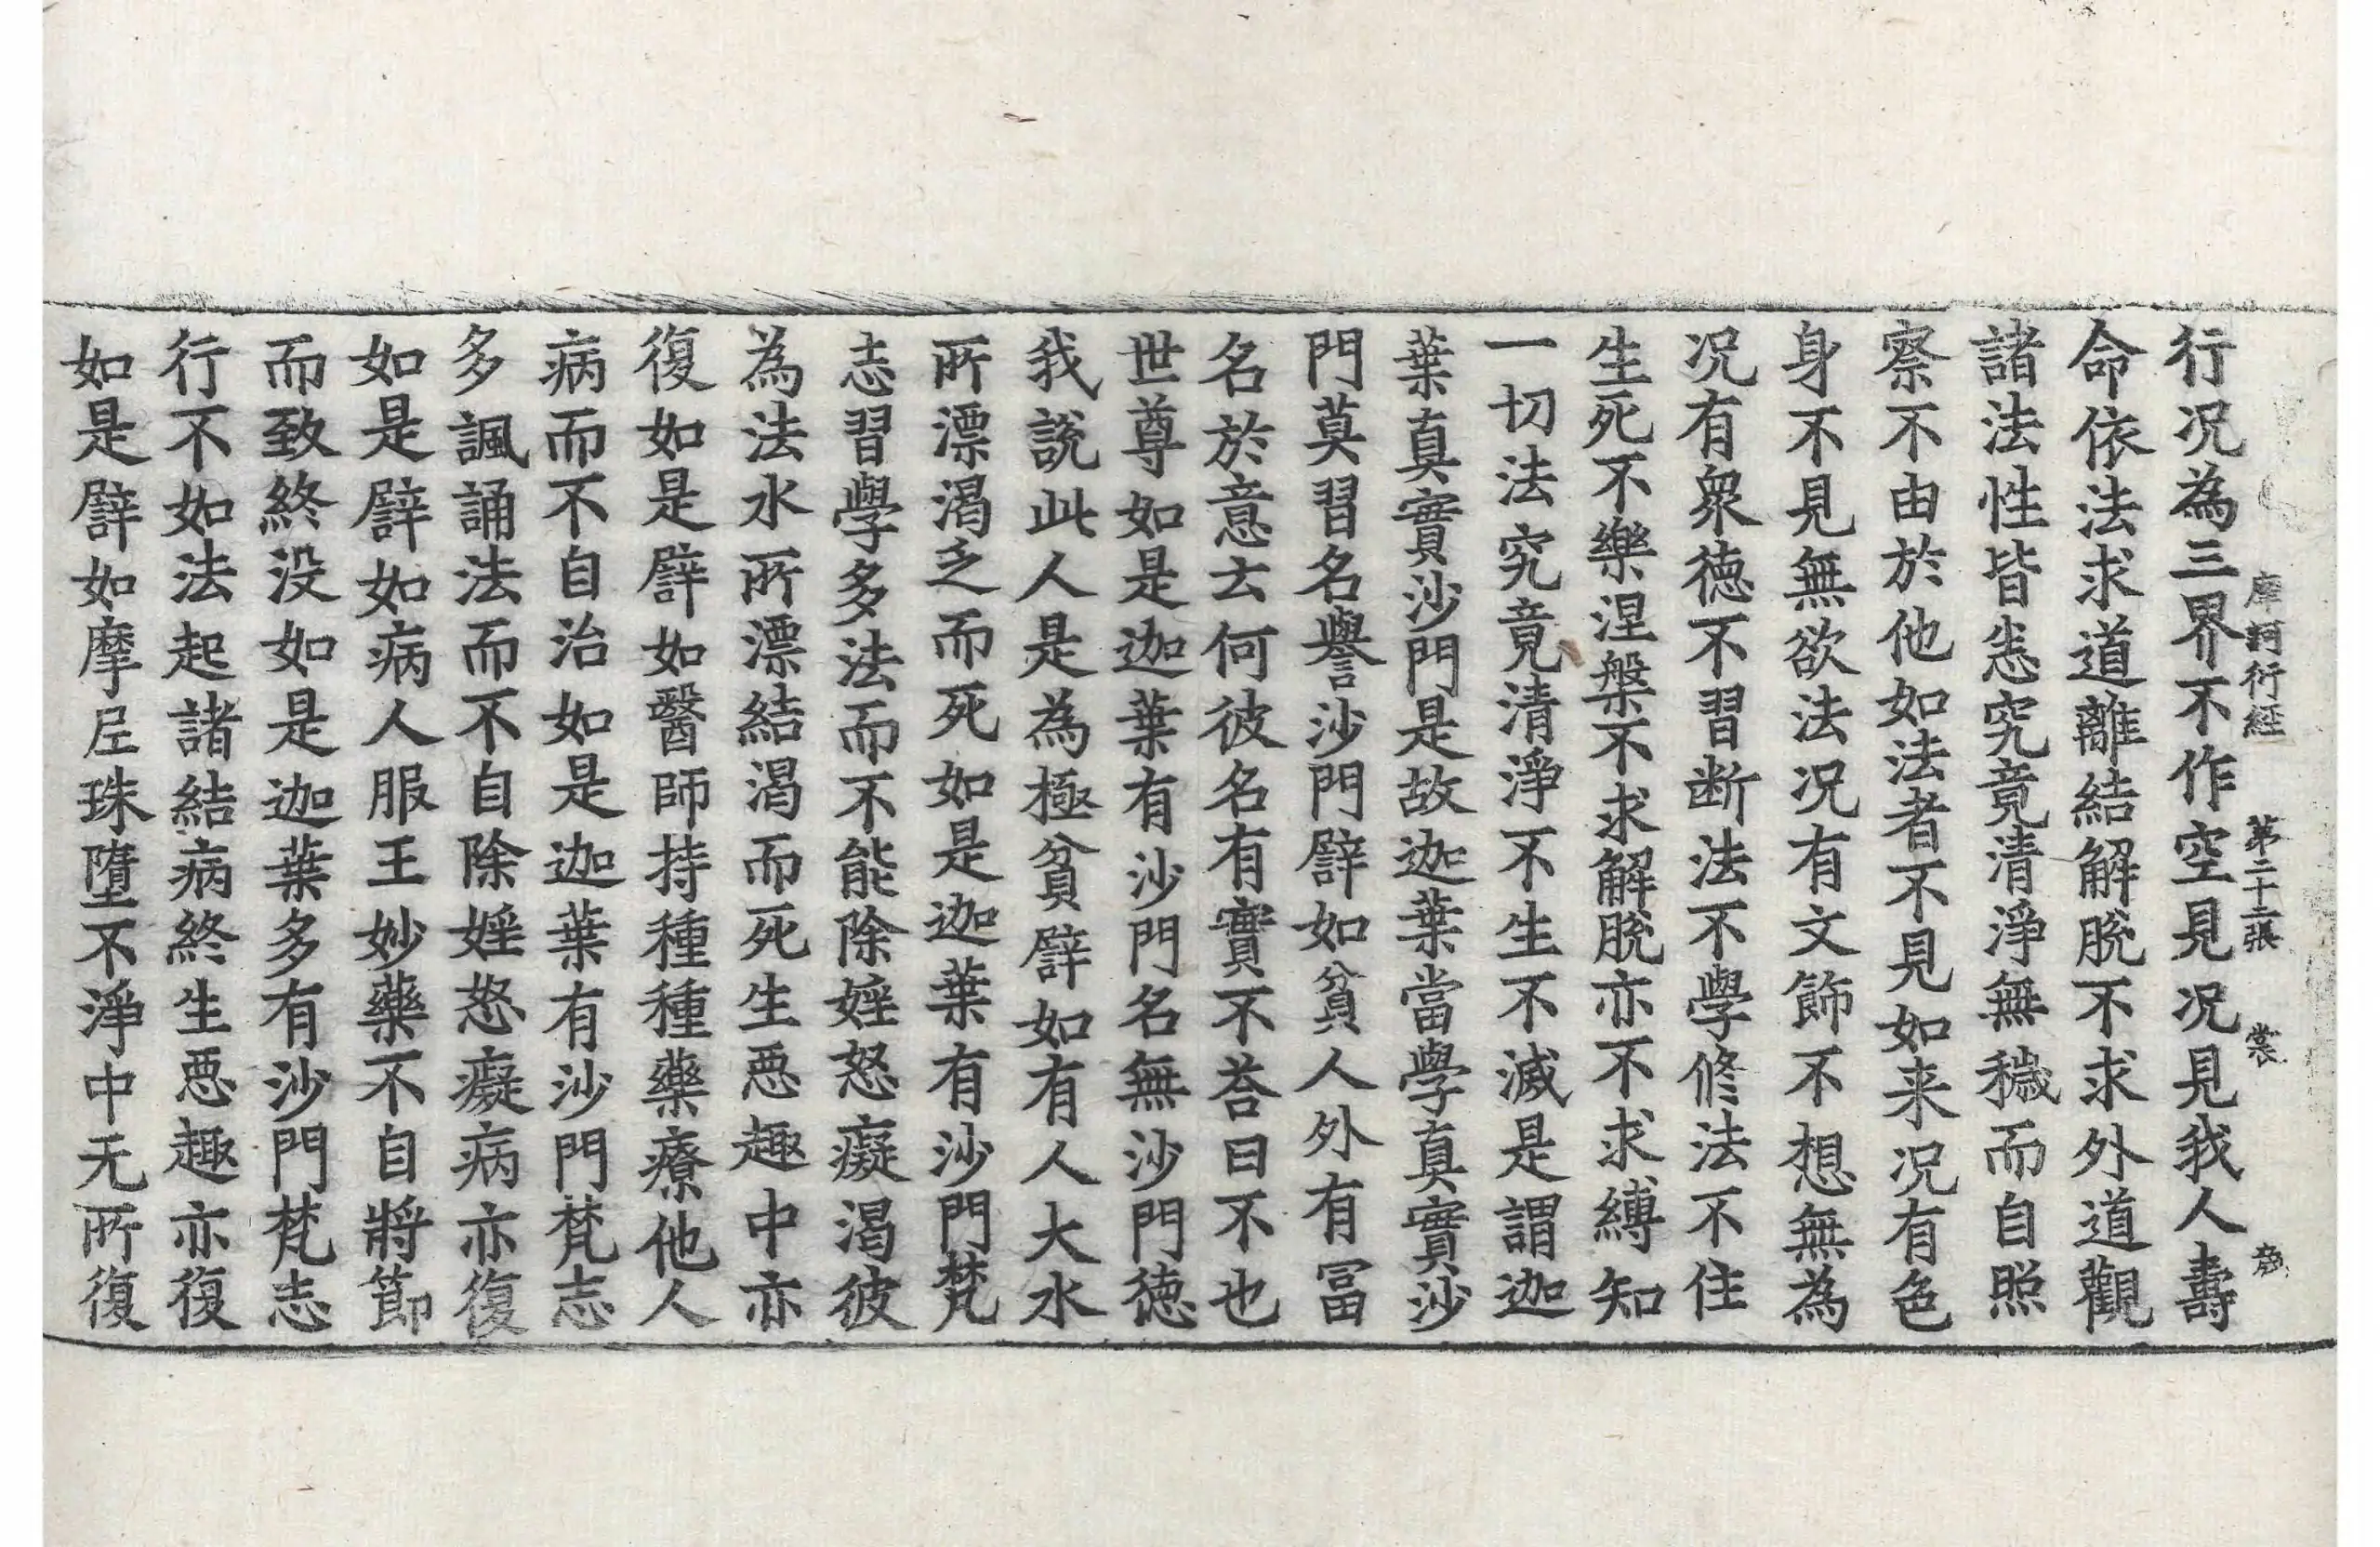 摩訶衍經 第二十二張 裳
行况為三界不作空見况見我人壽
命依法求道離結解脫不求外道觀
諸法性皆悉究竟清淨無穢而自照
察不由於他如法者不見如来况有色
身不見無欲法况有文飾不想無為
况有衆德不習断法不學修法不住
生死不樂涅槃不求解脫亦不求縛知
一切法究竟清淨不生不滅是謂迦
葉真實沙門是故迦葉當學真實沙
門莫習名譽沙門譬如貧人外有冨
名於意云何彼名有實不荅曰不也
世尊如是迦葉有沙門名無沙門徳
我說此人是為極貧譬如有人大水
所漂渴乏而死如是迦葉有沙門梵
志習學多法而不能除婬怒癡渴彼
為法水所漂結渴而死生惡趣中亦
復如是譬如醫師持種種藥療他人
病而不自治如是迦葉有沙門梵志
多諷誦法而不自除婬怒癡病亦復
如是譬如病人服王妙藥不自將節
而致終没如是迦葉多有沙門梵志
行不如法起諸結病終生惡趣亦復
如是譬如摩尼珠墮不淨中无所復